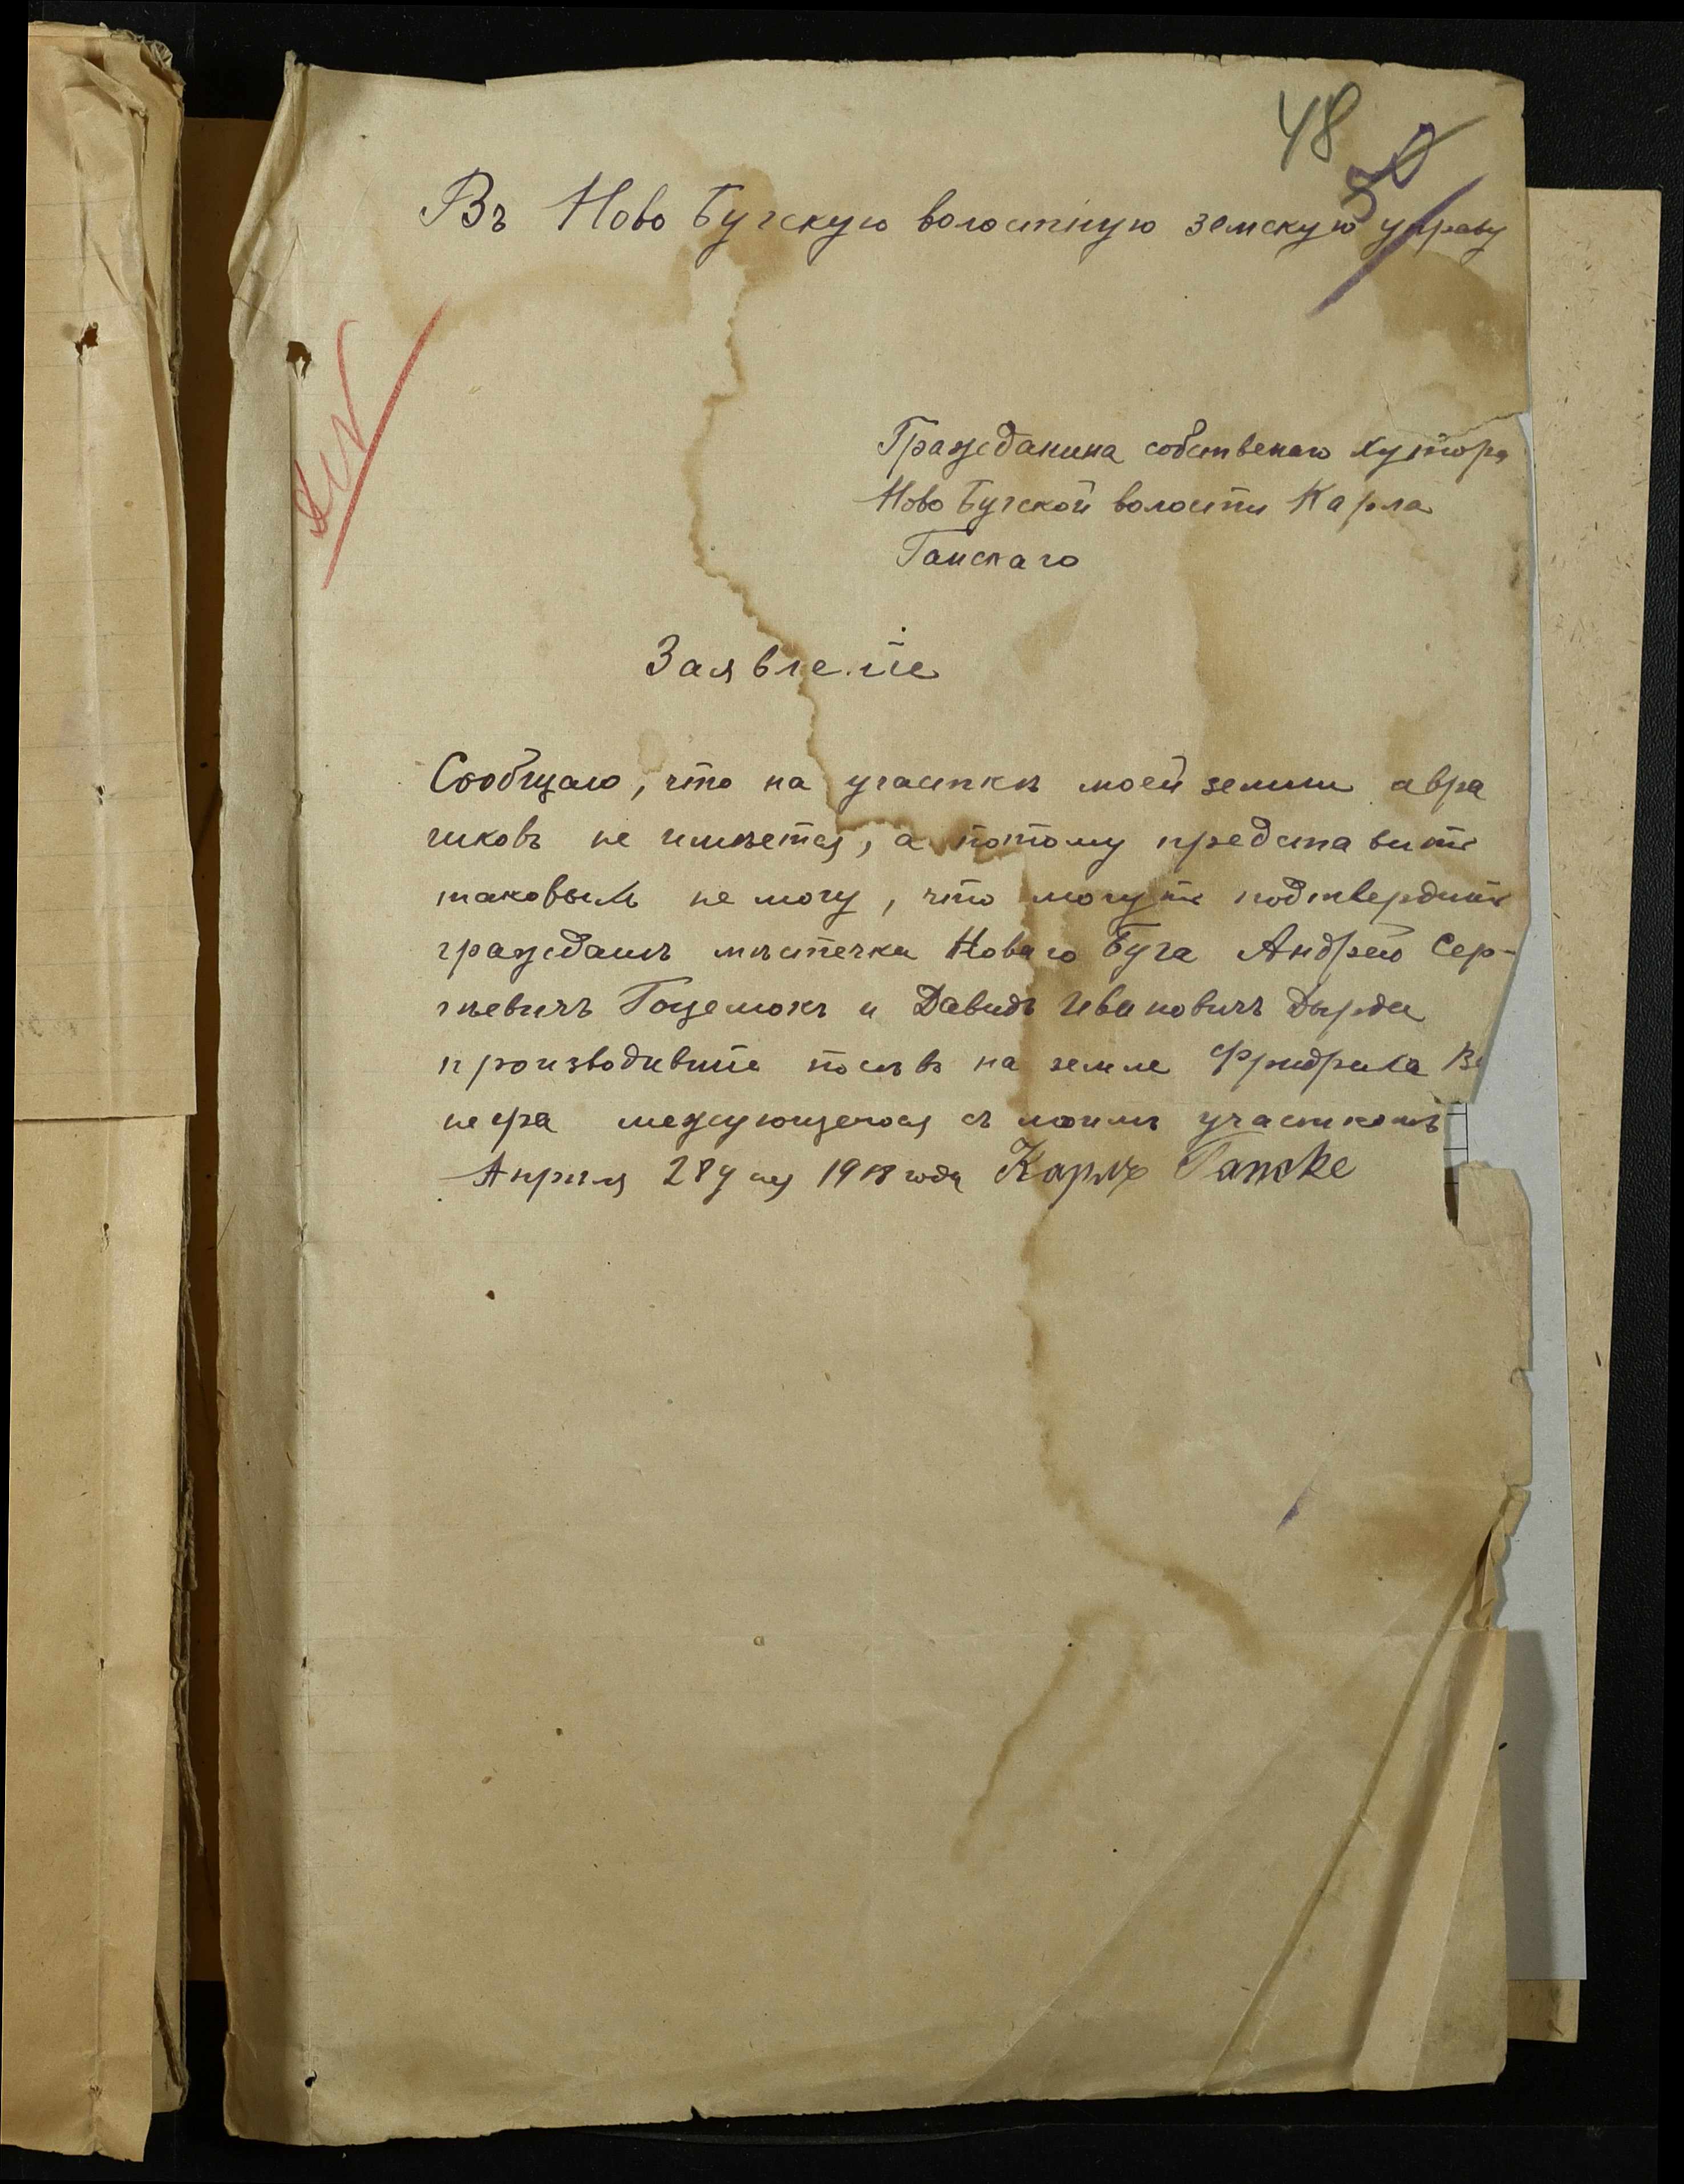 48
50
Въ Ново Бугскую волостную земскую управу
Гражданина собственаго хутора
Ново Бугской волости Карла
Ганскаго
Заявленіе
Сообщаю, что на участкѣ моей земли авра
чиковъ не имѣется, а потому представить
таковыхъ не могу, что могутъ подтвердить
граждане мѣстечка Новаго Буга Андрей Сер-
гѣевичъ и Давидъ Ивановичъ Дырда
производившіе посѣвъ на земле Фридриха
нера межующегося съ моимъ участкомъ
Апрѣля 28 дня 1918 года Карлъ Ганске